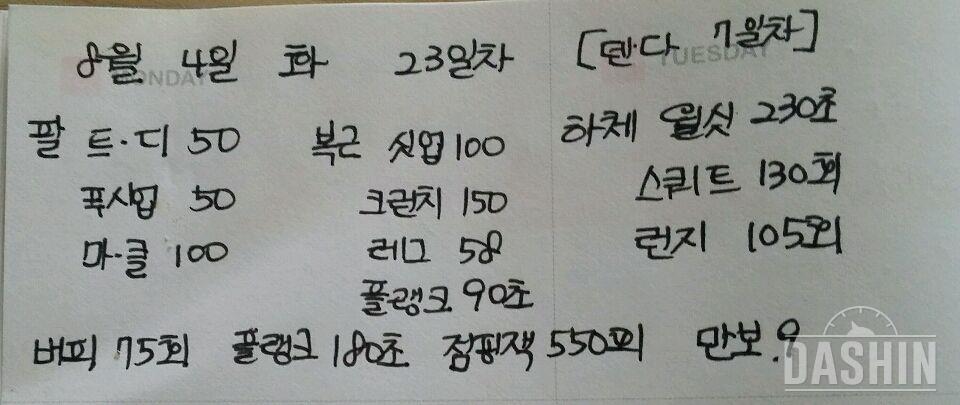 8월 4일 화 23일차 [텐·다 7일차]
MONDAY TUESDAY
팔 트·디 50 복근 싯업 100 하체 월싯 230초
푹시업 50 크런치 150 스쿼트 130회
마·클 100 레그 58 런지 105회
플랭크 90초
버피 75회 플랭크 180초 점핑잭 550회 만보.9
DASHIN